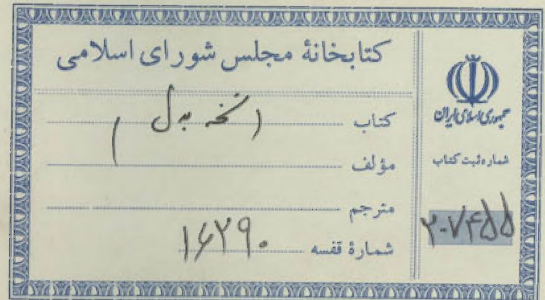 کتابخانهٔ مجلس شورای اسلامی
کتاب (نسخه بدل)
مؤلف
مترجم
شمارهٔ قفسه ۱۶۲۹۰
جمهوری اسلامی ایران
شماره ثبت کتاب
۲۰۷۴۵۵